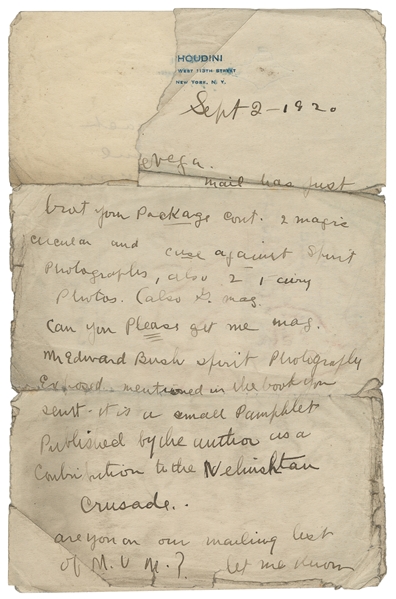 HOUDINI
WEST 113TH STREET
NEW YORK, N. Y.
Sept 2 - 1920
Vega.
mail has just
brot your Package Cont. 2 magic
circular and case against Spirit
Photographs, also 2 Fairy
Photos. (also 2 mag.
Can you Please get me mag.
Mr Edward Bush Spirit Photography
Exposed. mentioned in the book you
sent - it is a small Pamphlet
Published by the author as a
Contribution to the Nehushtan
Crusade..
are you on our mailing list
of M. U. M.? let me know